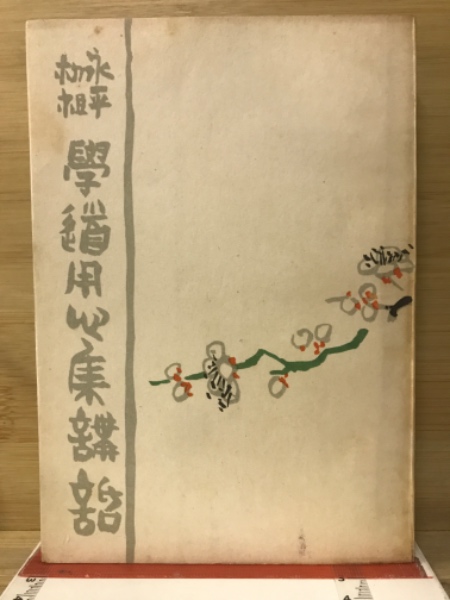 永平
初祖
學道用心集講話